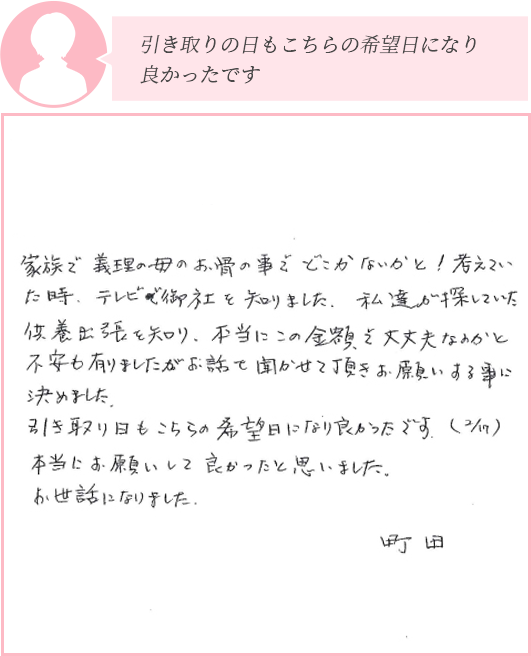 引き取りの日もこちらの希望日になり
良かったです
家族で義理の母のお骨の事で どこかないかと！考えてい
た時、テレビで御社を知りました。私達が探していた
供養出張を知り、本当にこの金額で大丈夫なのかと
不安も有りましたがお話で聞かせて頂きお願いする事に
決めました。
引き取り日もこちらの希望日になり良かったです。(2/17)
本当にお願いして良かったと思いました。
お世話になりました。
町田